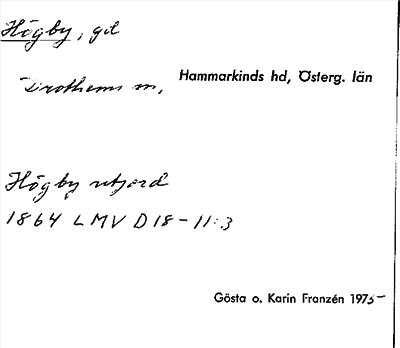 Högby, gd
Drothems sn,
Hammarkinds hd, Österg. län
Högby utjord
1864 LMV D18-11:3
Gösta o. Karin Franzén 1975